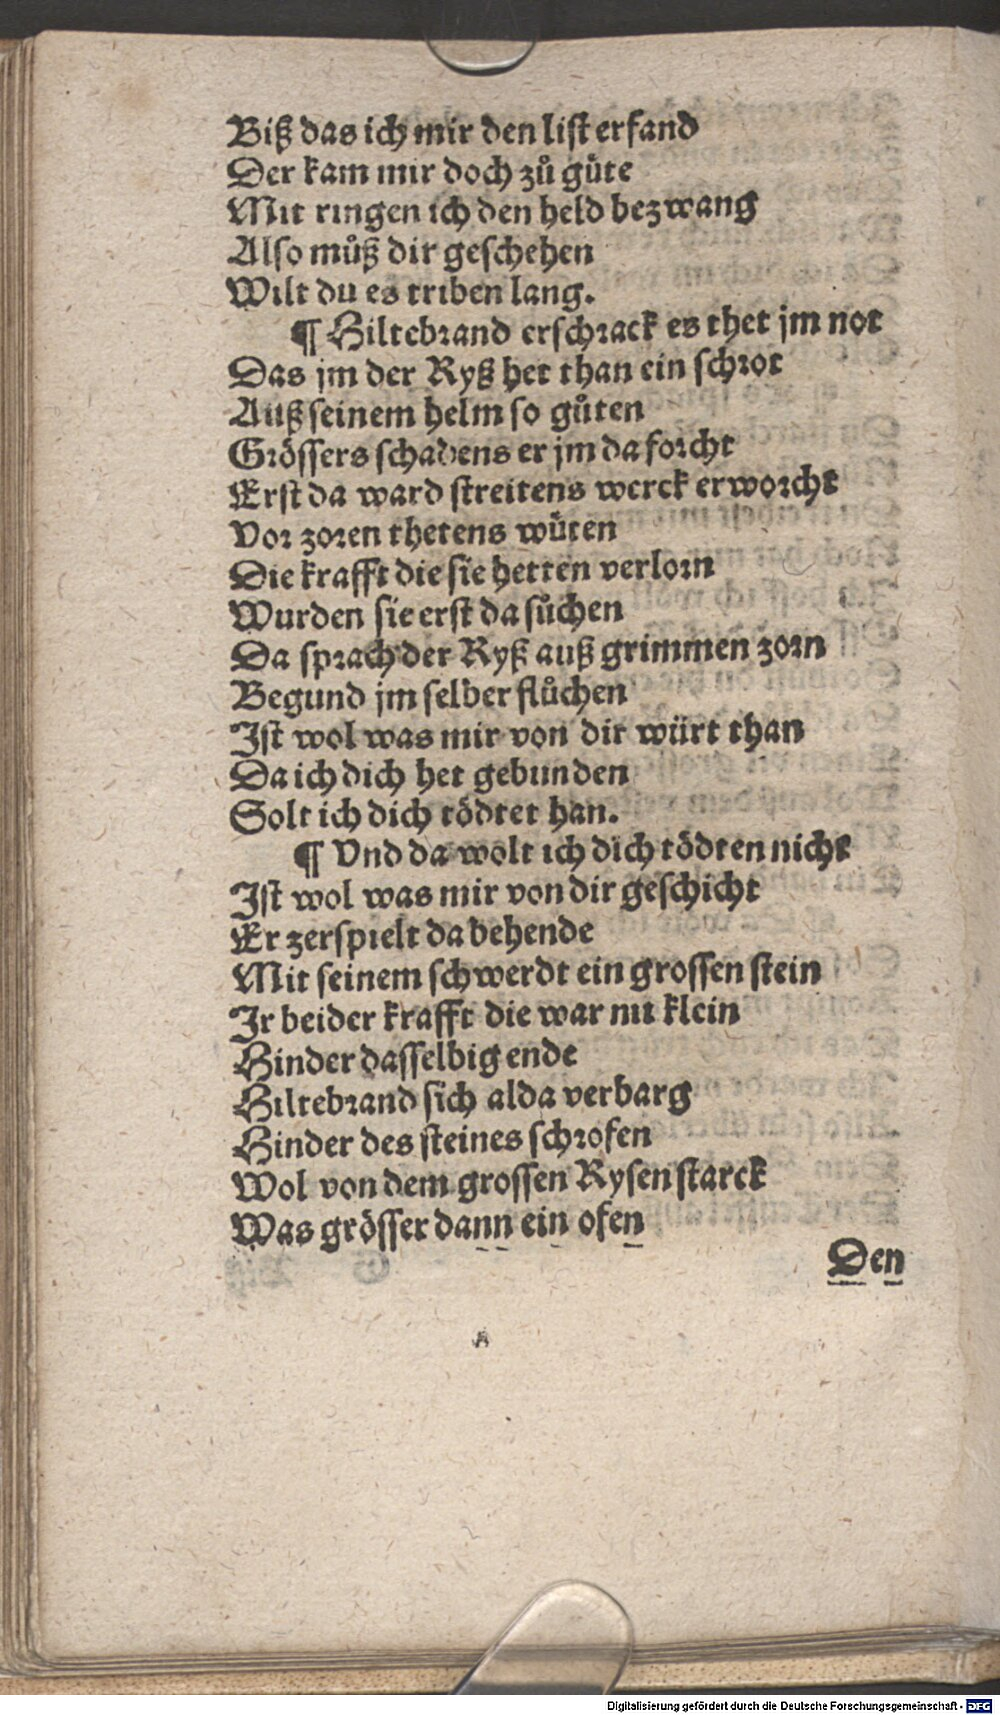 Biß das ich mir den list erfand
Der kam mir doch zů gůte
Mit ringen ich den held bezwang
Also můß dir geschehen
Wilt du es triben lang.
¶ Hiltebrand erschrack es thet jm not
Das jm der Ryß het than ein schrot
Auß seinem helm so gůten
Grössers schadens er jm da forcht
Erst da ward streitens werck erworcht
Vor zoren thetens wüten
Die krafft die sie hetten verlorn
Wurden sie erst da sůchen
Da sprach der Ryß auß grimmen zorn
Begund jm selber flůchen
Ist wol was mir von dir würt than
Da ich dich het gebunden
Solt ich dich tödtet han.
¶ Vnd da wolt ich dich tödten nicht
Ist wol was mir von dir geschicht
Er zerspielt da behende
Mit seinem schwerdt ein grossen stein
Ir beider krafft die war nu klein
Hinder dasselbig ende
Hiltebrand sich alda verbarg
Hinder des steines schrofen
Wol von dem grossen Rysen starck
Was grösser dann ein ofen
Den
Digitalisierung gefördert durch die Deutsche Forschungsgemeinschaft - DFG